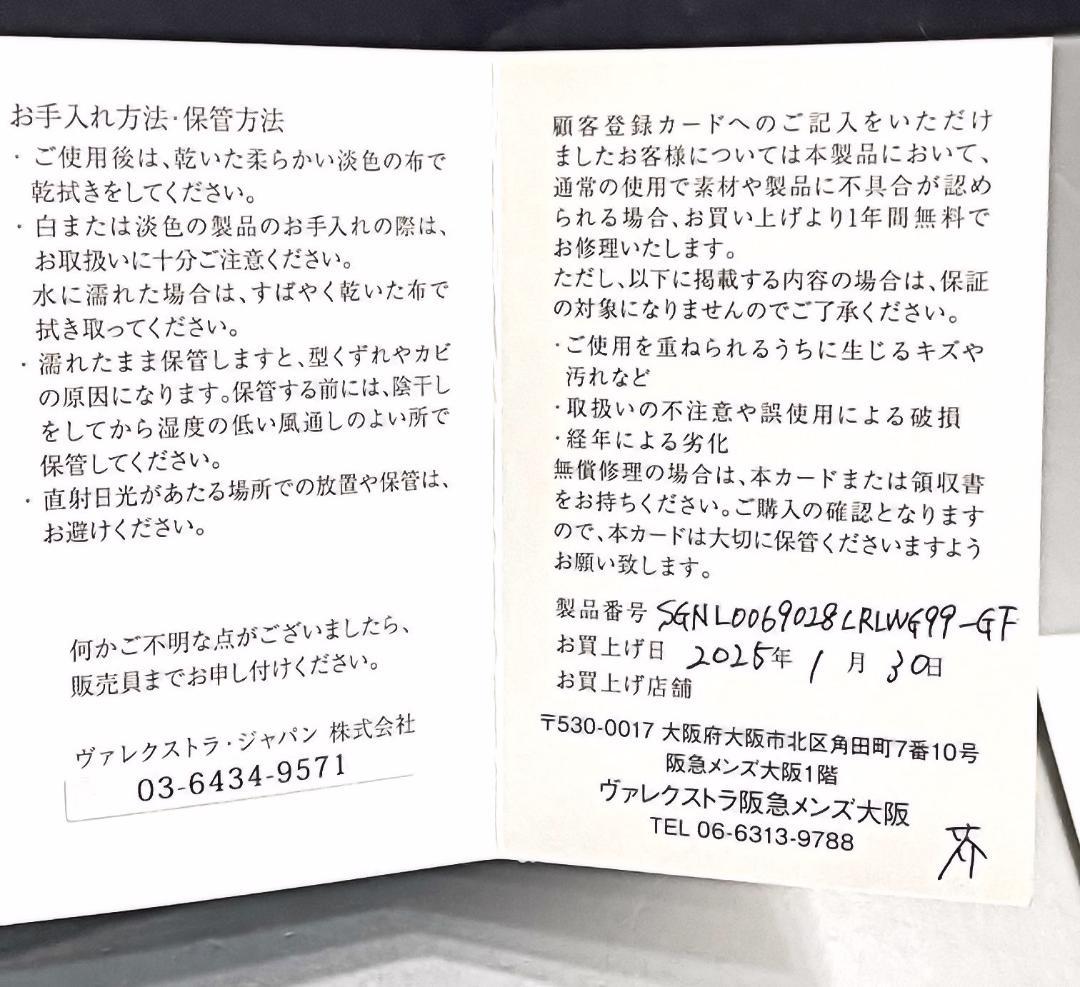 お手入れ方法・保管方法
・ご使用後は、乾いた柔らかい淡色の布で
乾拭きをしてください。
・白または淡色の製品のお手入れの際は、
お取扱いに十分ご注意ください。
水に濡れた場合は、すばやく乾いた布で
拭き取ってください。
・濡れたまま保管しますと、型くずれやカビ
の原因になります。保管する前には、陰干し
をしてから湿度の低い風通しのよい所で
保管してください。
・直射日光があたる場所での放置や保管は、
お避けください。
何かご不明な点がございましたら、
販売員までお申し付けください。
ヴァレクストラ・ジャパン 株式会社
03-6434-9571
顧客登録カードへのご記入をいただけ
ましたお客様については本製品において、
通常の使用で素材や製品に不具合が認め
られる場合、お買い上げより1年間無料で
お修理いたします。
ただし、以下に掲載する内容の場合は、保証
の対象になりませんのでご了承ください。
・ご使用を重ねられるうちに生じるキズや
汚れなど
・取扱いの不注意や誤使用による破損
・経年による劣化
無償修理の場合は、本カードまたは領収書
をお持ちください。ご購入の確認となります
ので、本カードは大切に保管くださいますよう
お願い致します。
製品番号 SGNL0069028LRLWG99-GF
お買上げ日 2025年 1月 30日
お買上げ店舗
〒530-0017 大阪府大阪市北区角田町7番10号
阪急メンズ大阪1階
ヴァレクストラ阪急メンズ大阪
TEL 06-6313-9788